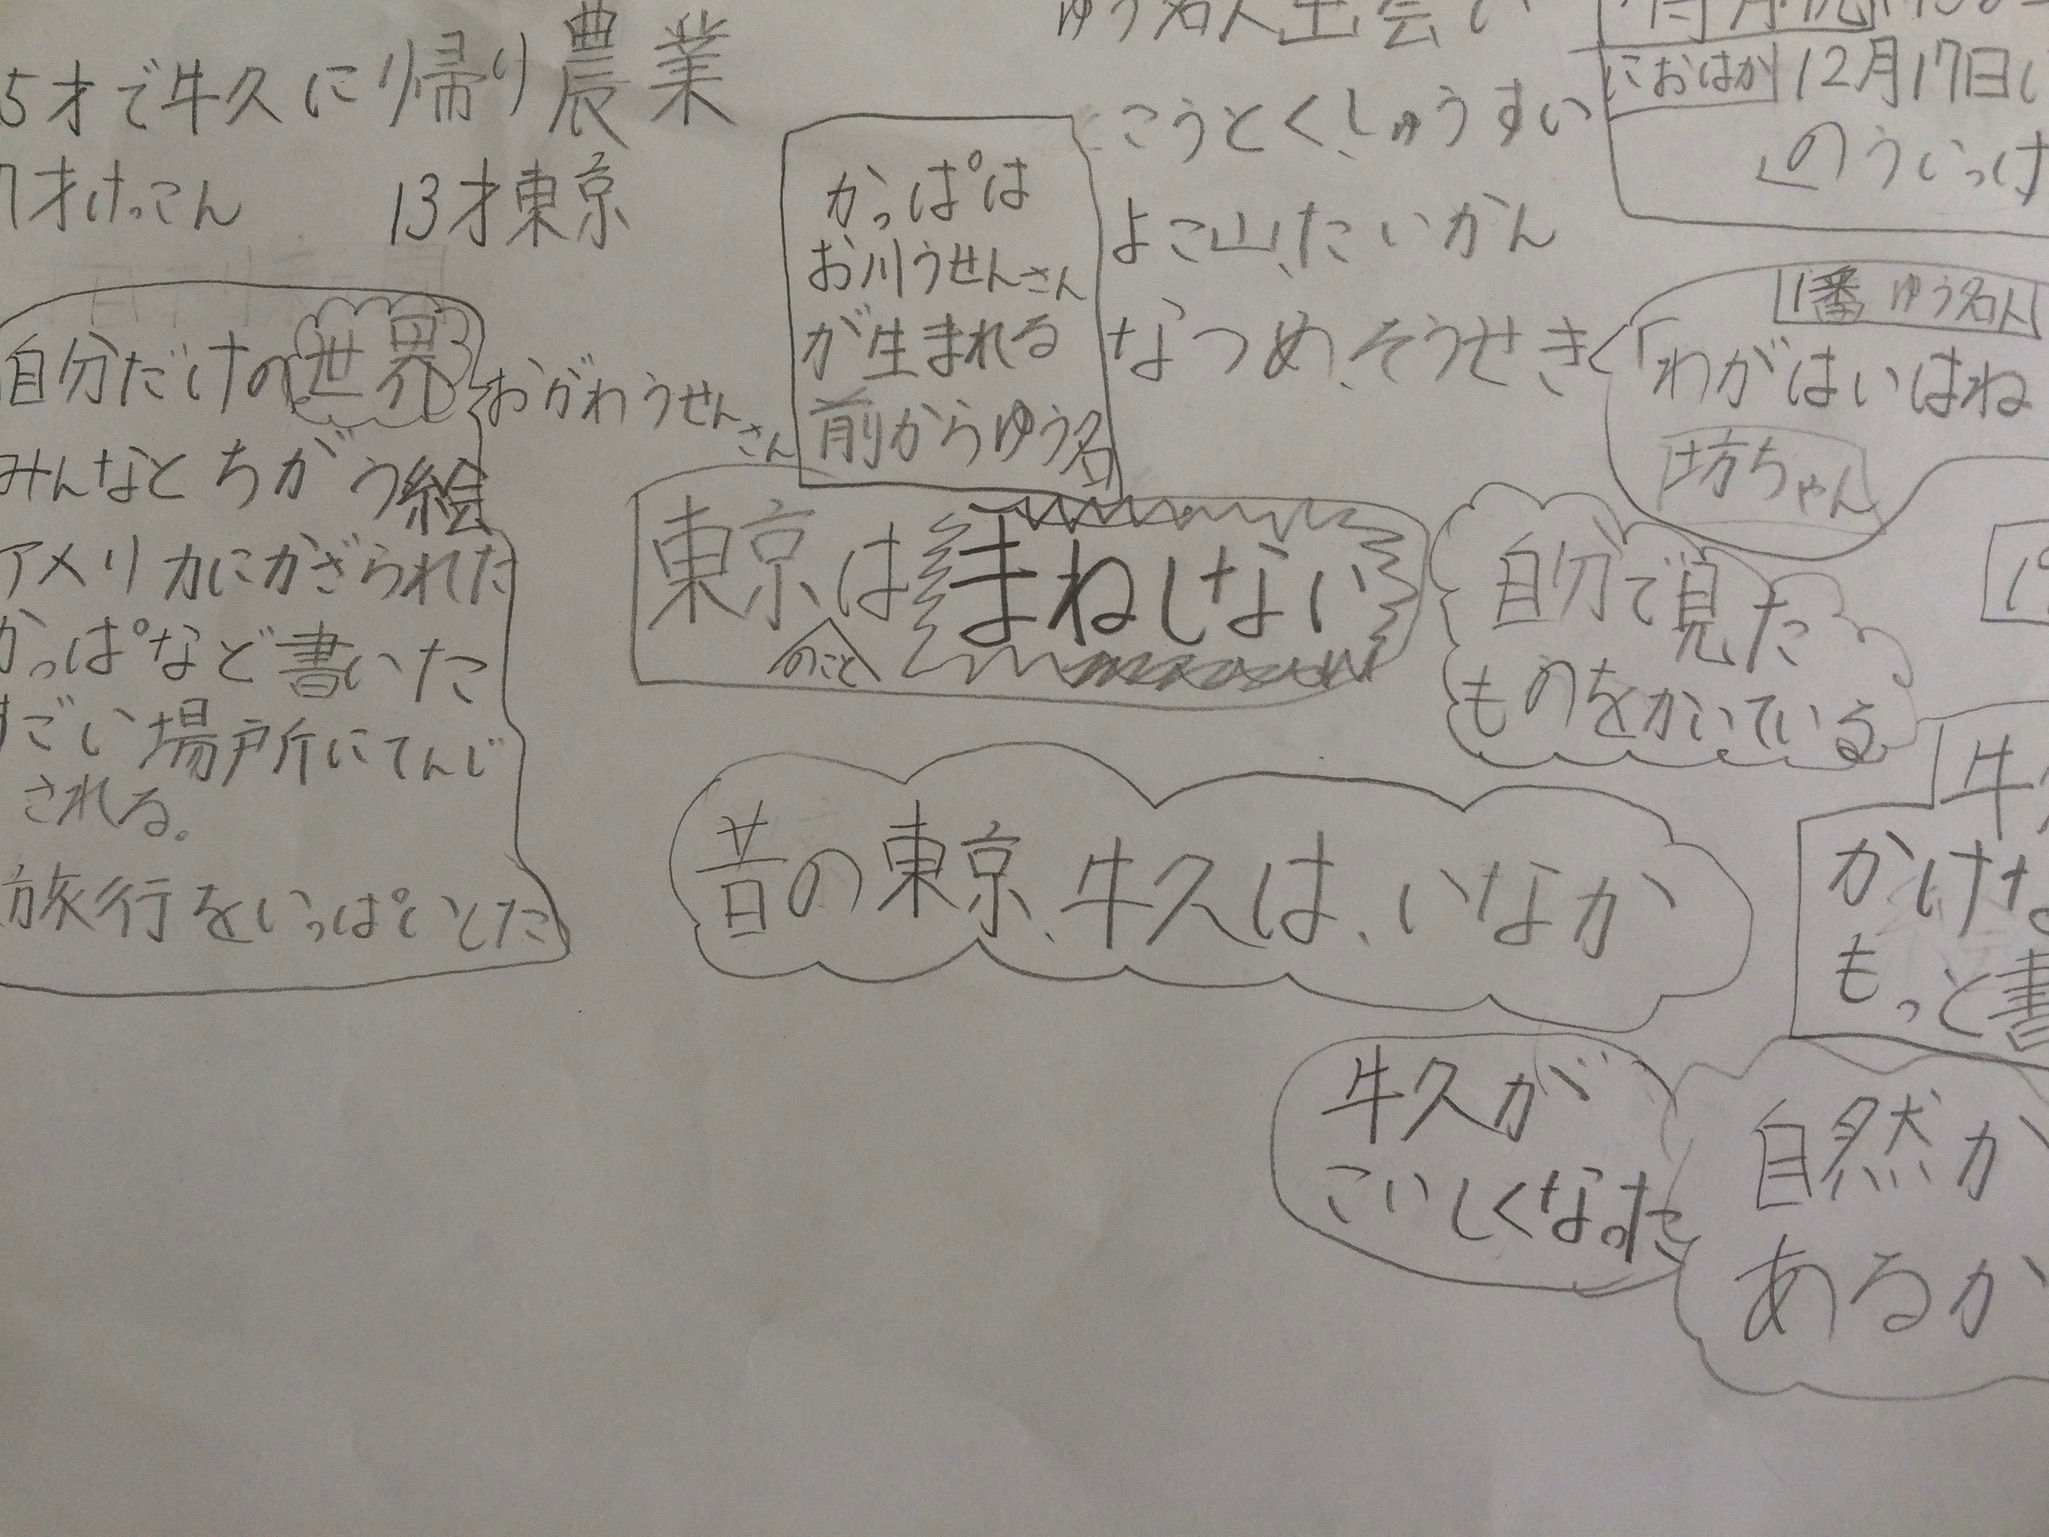 5才で牛久に帰り農業
7才けっこん
13才東京
自分だけの世界
みんなとちがう絵
アメリカにかざられた
かっぱなど書いた
すごい場所にてんじ
される。
旅行をいっぱいした
おがわうせん
さん
かっぱは
お川うせんさん
が生まれる
前からゆう名
ゆう名人出会い
こうとく、しゅうすい
よこ山、たいかん
なつめ、そうせき
におはか
12月17日
のういっけ
1番ゆう名人
「わがはいはね
坊ちゃん
東京はまねしない
のこと
自分で見た
ものをかいている
昔の東京、牛久は、いなか
牛
かけな
もっと書
牛久が
こいしくなった
自然か
あるか